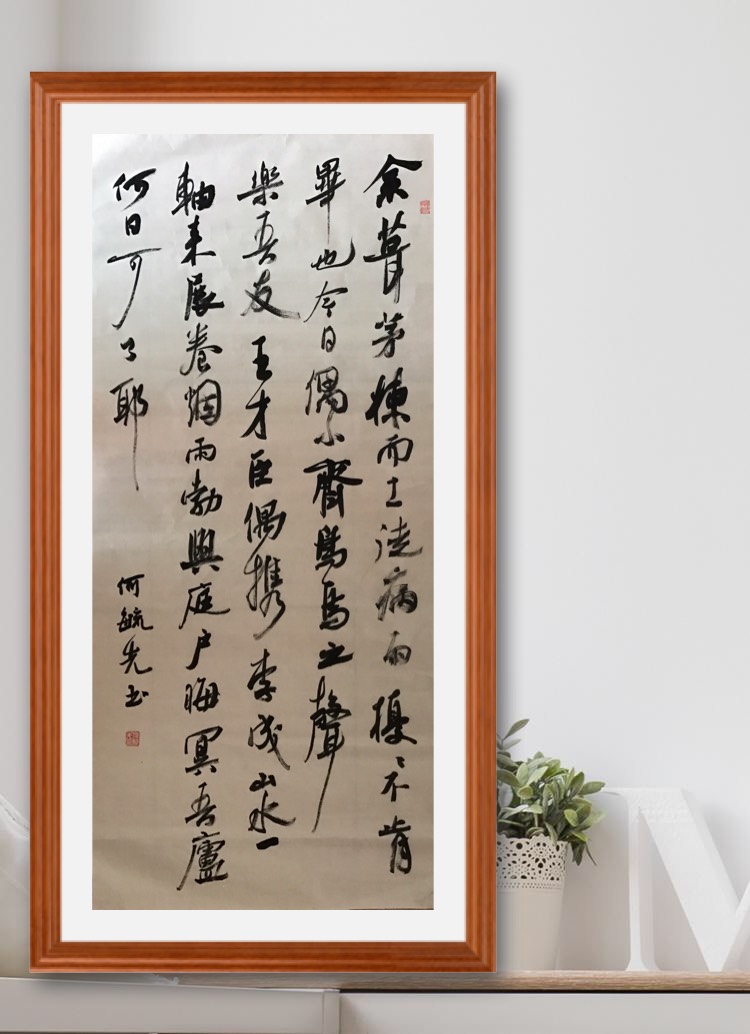 余葺茅棟而土徒病雨擾〻不肯
畢也今日偶小齋鳥烏之聲
樂吾友王才臣偶携李成山水一
軸來展卷烟雨勃興庭户晦冥吾廬
何日可了耶
何毓先书
M